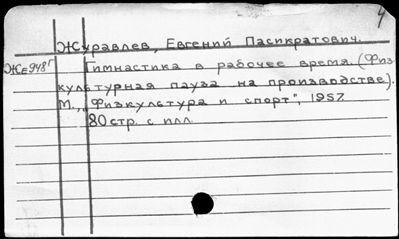 4
Журавлев, Евгений Пасикратович.
Же948г Гимнастика в рабочее время. (Физ
культурная пауза на производстве).
М., „Физкультура и спорт", 1957.
80 стр. с илл.